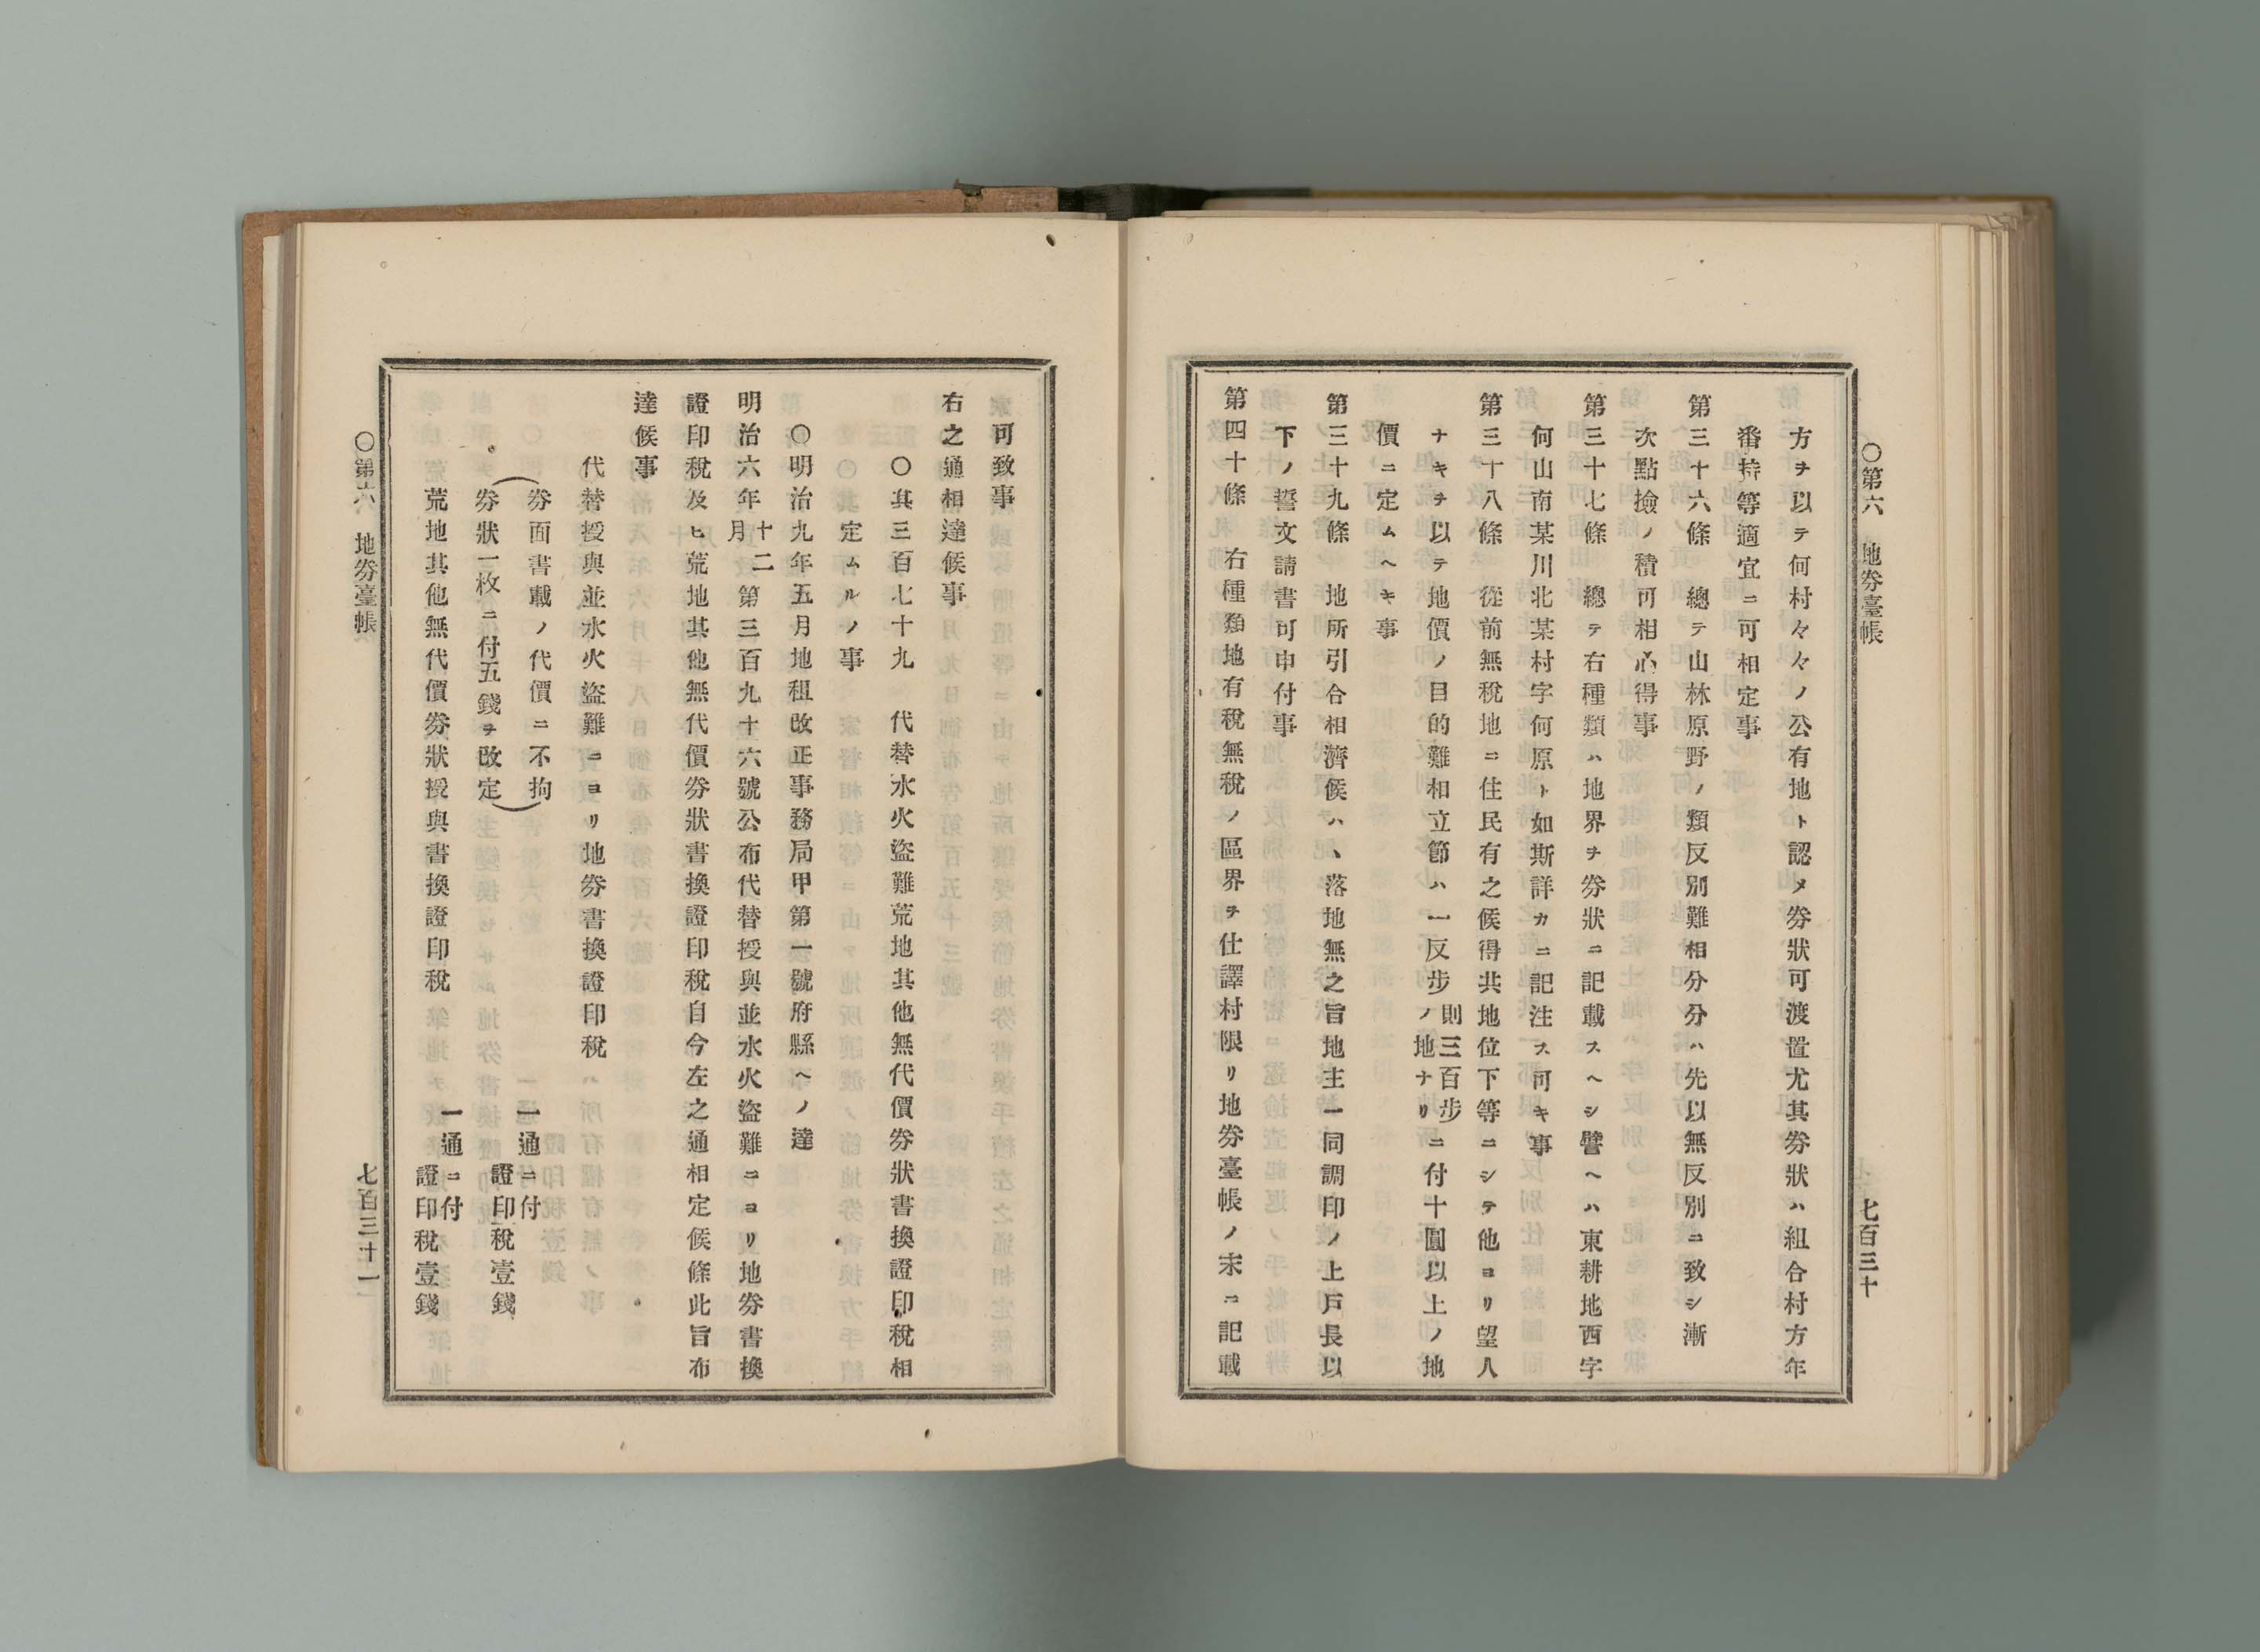 ○第六 地券臺帳
七百三十
方ヲ以テ何村々々ノ公有地ト認メ券狀可渡置尤其券狀ハ組合村方年
番持等適宜ニ可相定事
第三十六條 總テ山林原野ノ類反別難相分分ハ先以無反別ニ致シ漸
次點撿ノ積可相心得事
第三十七條 總テ右種類ハ地界ヲ券狀ニ記載スヘシ譬ヘハ東耕地西字
何山南某川北某村字何原ト如斯詳カニ記注ス可キ事
第三十八條 從前無稅地ニ住民有之候得共地位下等ニシテ他ヨリ望人
ナキヲ以テ地價ノ目的難相立節ハ一反步則三百步ノ地ナリニ付十圓以上ノ地
價ニ定ムヘキ事
第三十九條 地所引合相濟候ハヽ落地無之旨地主一同調印ノ上戸長以
下ノ誓文請書可申付事
第四十條 右種類地有稅無稅ノ區界ヲ仕譯村限リ地券臺帳ノ末ニ記載
家可致事
右之通相達候事
○其三百七十九 代替水火盜難荒地其他無代價券狀書換證印稅相
定ムルノ事
○明治九年五月地租改正事務局甲第一號府縣ヘノ達
明治六年十二月第三百九十六號公布代替授與並水火盜難ニヨリ地券書換
證印稅及ヒ荒地其他無代價券狀書換證印稅自今左之通相定候條此旨布
達候事
代替授與並水火盜難ニヨリ地券書換證印稅
(券面書載ノ代價ニ不拘
券狀一枚ニ付五錢ヲ改定)
一通ニ付
證印稅壹錢
荒地其他無代價券狀授與書換證印稅
一通ニ付
證印稅壹錢
○第六 地券臺帳
七百三十一